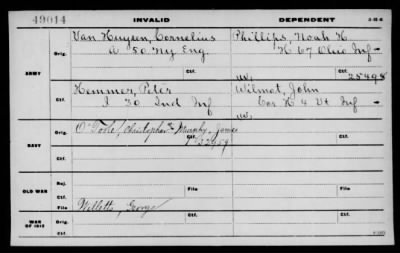 49014 INVALID DEPENDENT 3-18-6
Van Huysen, Cornelius Phillips, Noah H.
Orig. A 50 Ny Eng. K 67 Ohio Inf
ARMY Ctf. 25498
Hemmer, Peter Wilmot, John
Ctf. I 30 Ind Inf Cor K 4 Vt Inf
O'Toole, Christopher Murphy, James
Orig. Ctf.
NAVY
Ctf. Ctf.
Rej.
OLD WAR File File
Ctf.
Willett, George
WAR OF 1812 Orig. Ctf.
Ctf.